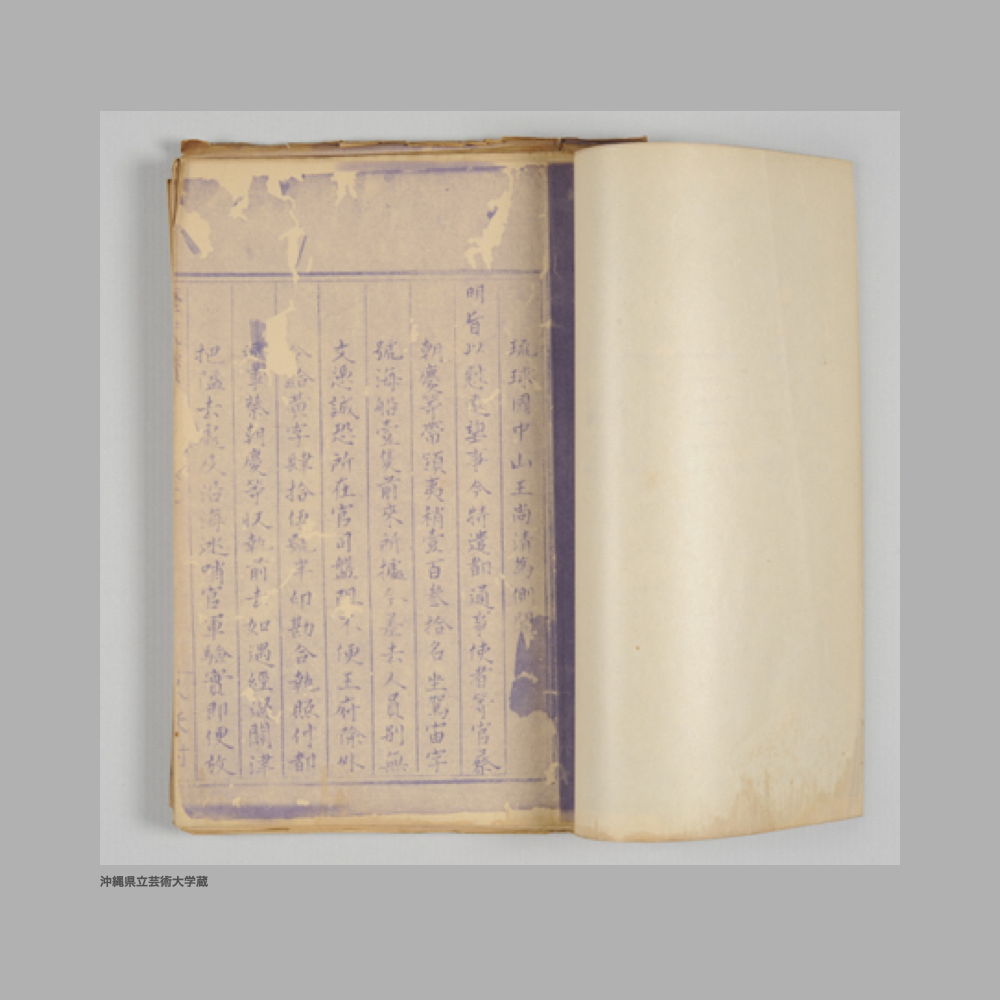 琉球國中山王尚清為
明旨以慰遠望事今特遣都通事使者等官蔡
朝慶等帶領夷稍壹百叁拾名坐駕宙字
號海船壹隻前來所據今差去人員別無
文憑誠恐所在官司盤阻不便王府除外
今給黃字肆拾伍號半印勘合執照付都
通事蔡朝慶等收執前去如遇經過關津
把隘去處及沿海巡哨官軍驗實即便放
沖縄県立芸術大学蔵